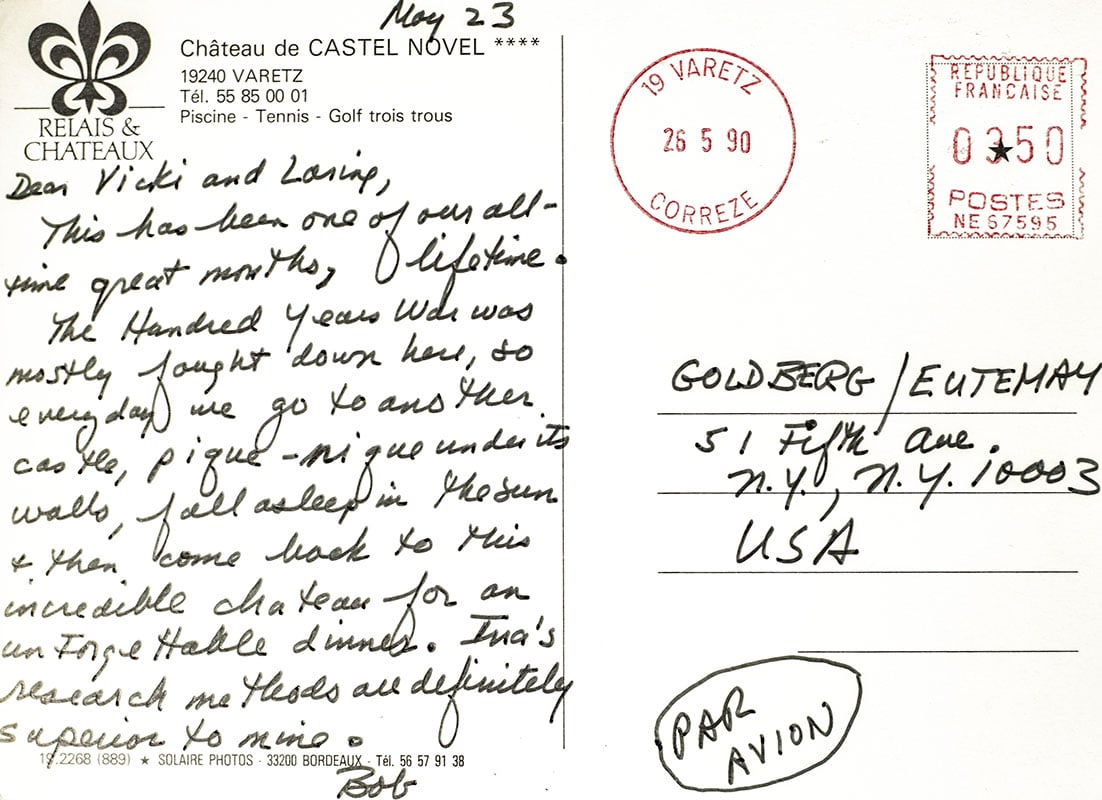 May 23
Château de CASTEL NOVEL ****
19240 VARETZ
Tél. 55 85 00 01
Piscine - Tennis - Golf trois trous
RELAIS &
CHATEAUX
Dear Vicki and Loring,
This has been one of our all-
time great months, lifetime.
The Hundred Years War was
mostly fought down here, so
everyday we go to another
castle, pique-nique under its
walls, fall asleep in the sun
& then come back to this
incredible chateau for an
unforgettable dinner. Ina's
research methods are definitely
superior to mine.
Bob
19.2268 (889) ★ SOLAIRE PHOTOS - 33200 BORDEAUX - Tél. 56 57 91 38
19 VARETZ
26 5 90
CORREZE
REPUBLIQUE
FRANCAISE
0350
POSTES
NE 67595
GOLDBERG/EUTEMAY
51 Fifth Ave.
N.Y., N.Y. 10003
USA
PAR
AVION